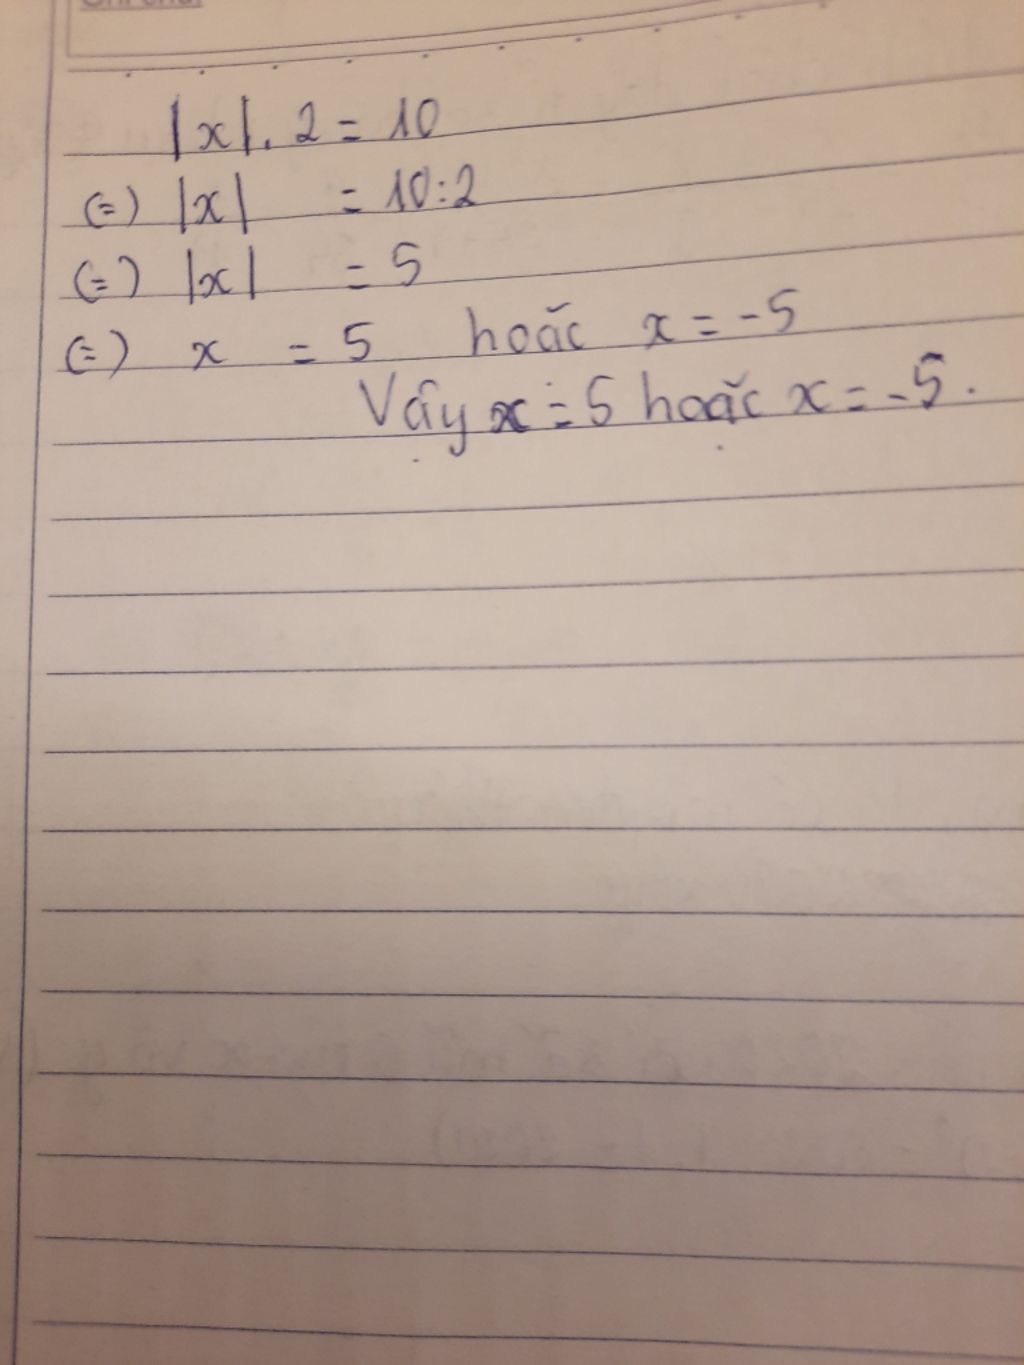 |x|. 2 = 10
(=) |x| = 10:2
(=) |x| = 5
(=) x = 5 hoặc x = -5
Vậy x = 5 hoặc x = -5.